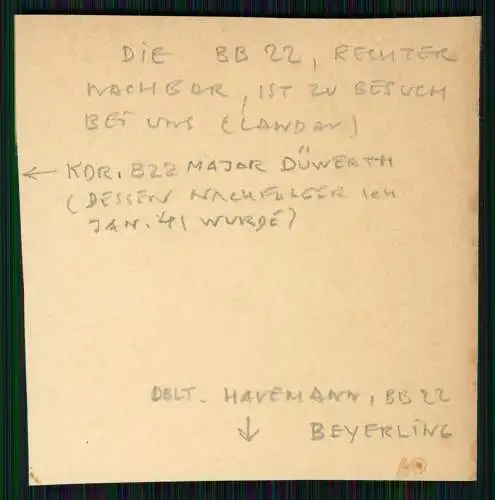 DIE BB 22, RECHTER
NACHBAR, IST ZU BESUCH
BEI UNS (LANDAU)
← KDR. B22 MAJOR DÜWERTH
(DESSEN NACHFOLGER ICH
JAN. '41 WURDE)
OBLT. HAVEMANN, BB 22
↓ BEYERLING